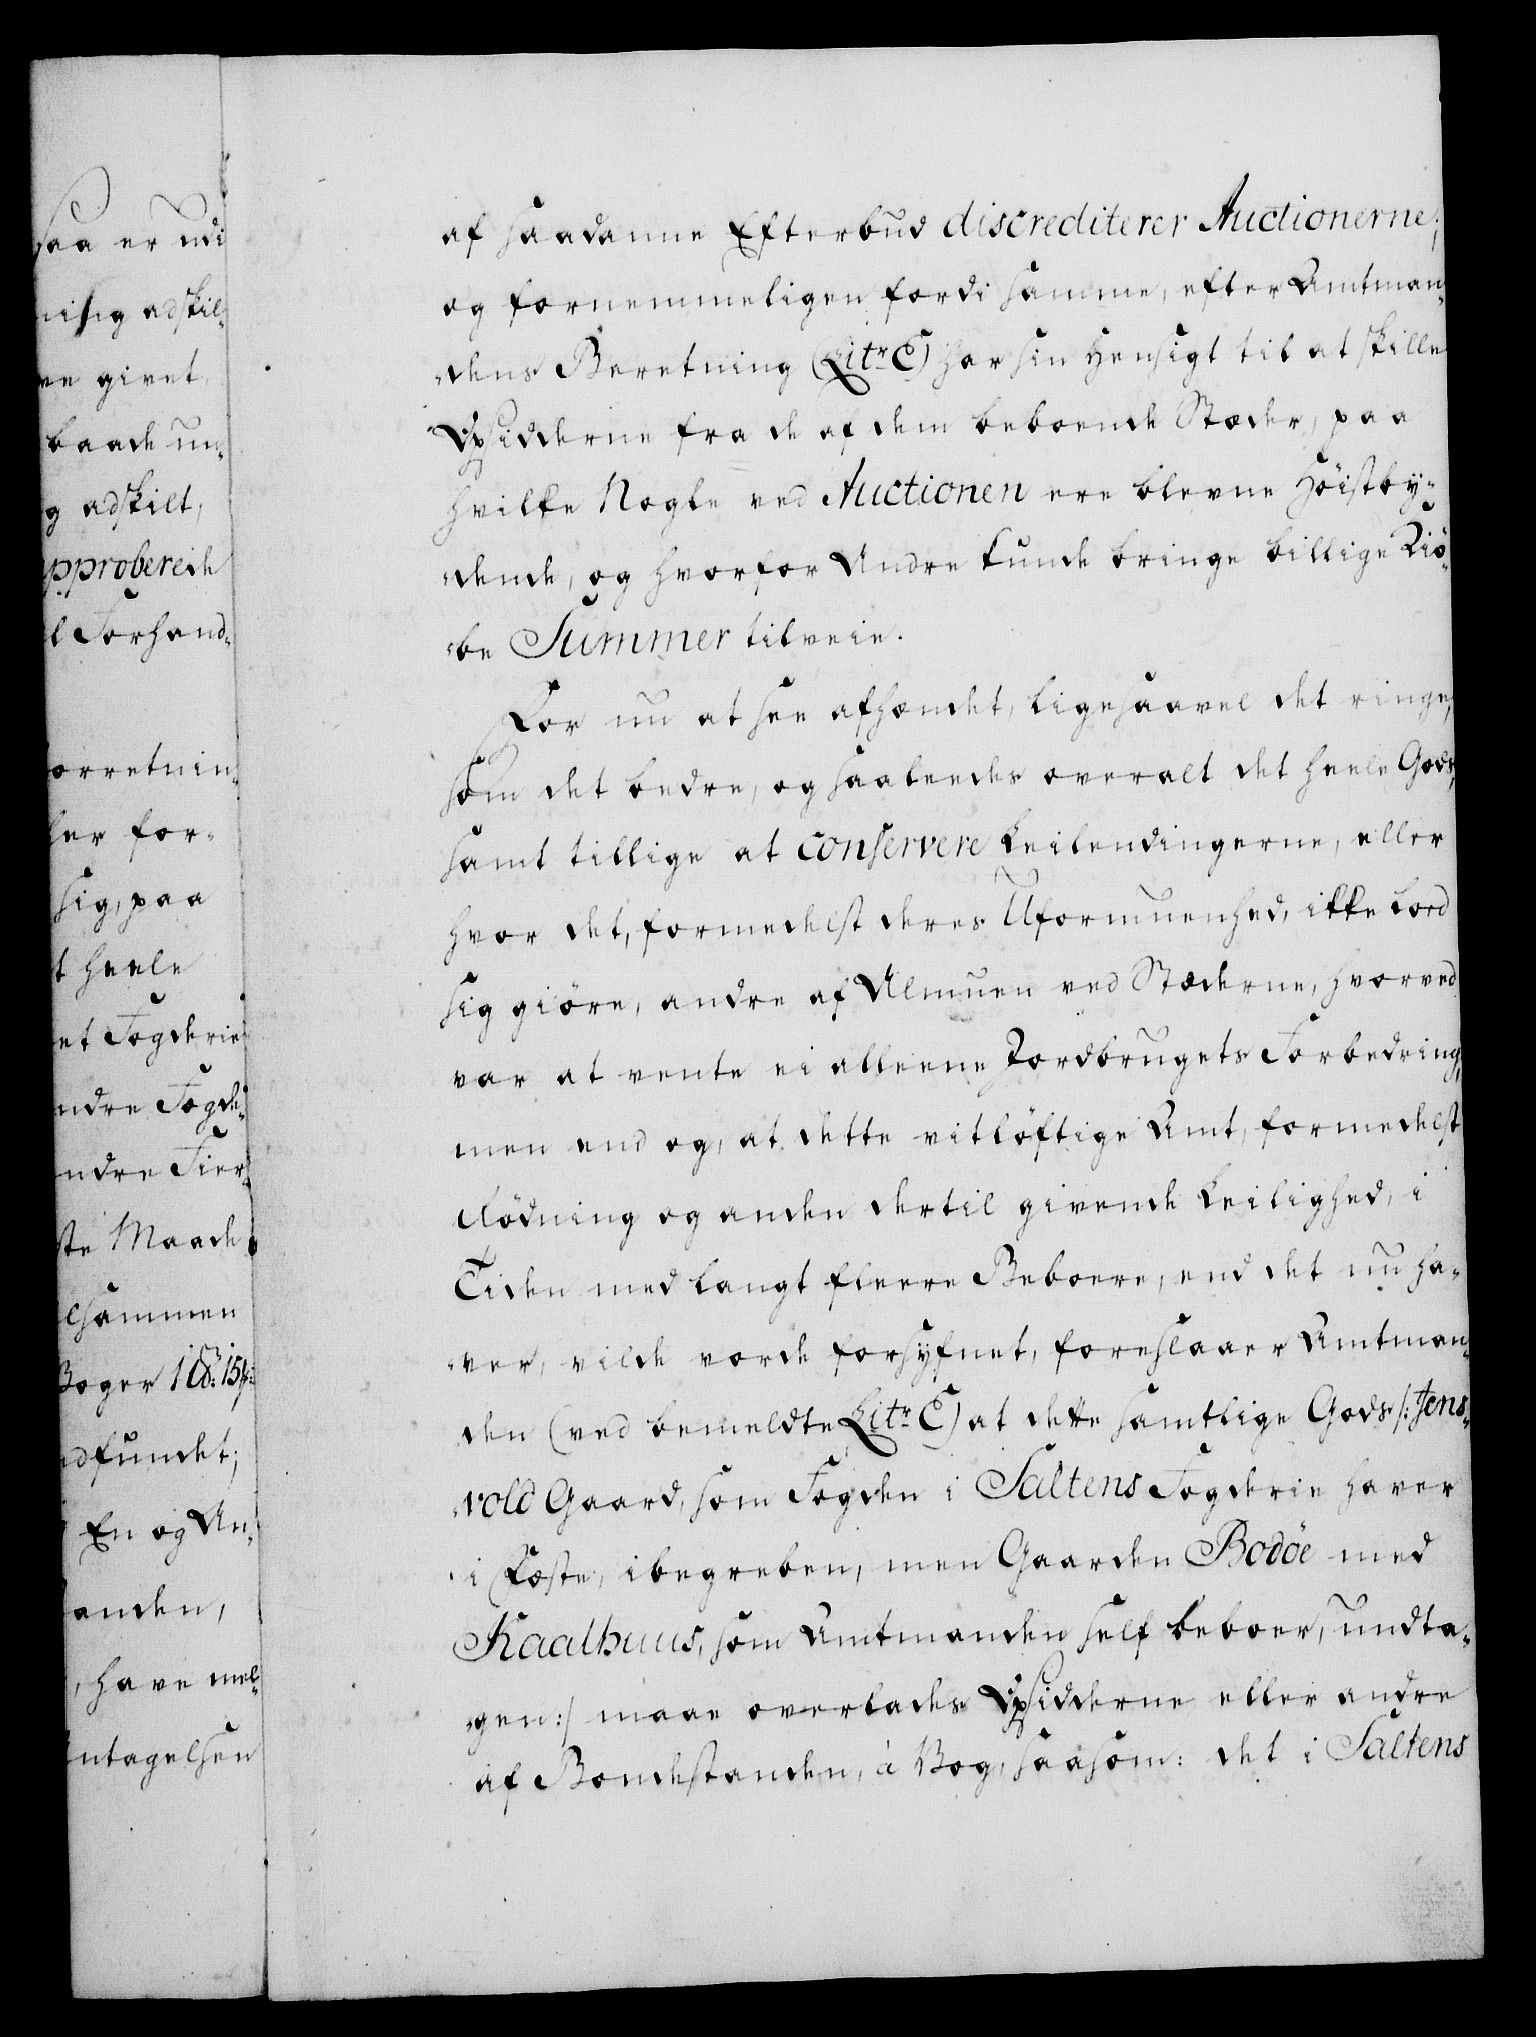 saa er udi
nisig adskil-
ve givet,
baade un-
g adskilt,
pproberede
l Forhand-
orretnin-
her for-
sig, paa
t heele
et Fogderie
ndre Fogde-
ndre Fier-
ste Maade
lsammen
Boger
dfundet;
En og An-
anden,
, have mel-
ntagelsen
af saadanne Efterbud discrediterer Auctionerne;
og fornemmeligen fordi samme, efter Amtman-
dens Beretning (Litr C) har sin Hensigt til at skille
Opsidderne fra de af dem beboende Stæder, paa
hvilke Nogle ved Auctionen ere blevne Høistby-
dende, og hvorfor Andre kunde bringe billige Kiö-
be Summer tilveie.
For nu at see afhændet, ligesaavel det ringe,
som det bedre, og saaleedes overalt det heele Gods,
samt tillige at conservere Leilendingerne, eller
hvor det, formedelst deres Uformuenhed, ikke lod
sig giöre, andre af Almuen ved Stæderne, hvorved
var at vente ei alleene Jordbrugets Forbedring,
men end og, at dette vitlöftige Amt, formedelst
Rödning og anden dertil givende Leilighed, i
Tiden med langt fleere Beboere, end det nu ha-
ver, vilde vorde forsyfnet, foreslaaer Amtman-
den (ved bemeldte Litr C) at dette samtlige Gods /: Jens-
vold Gaard, som Fogden i Saltens Fogderie haver
i Fæste, ibegreben, men Gaarden Bodöe med
Skaalhuus, som Amtmanden self beboer, undta-
gen:/ maae overlades Opsidderne eller andre
af Bondestanden, à Vog, saasom: det i Saltens